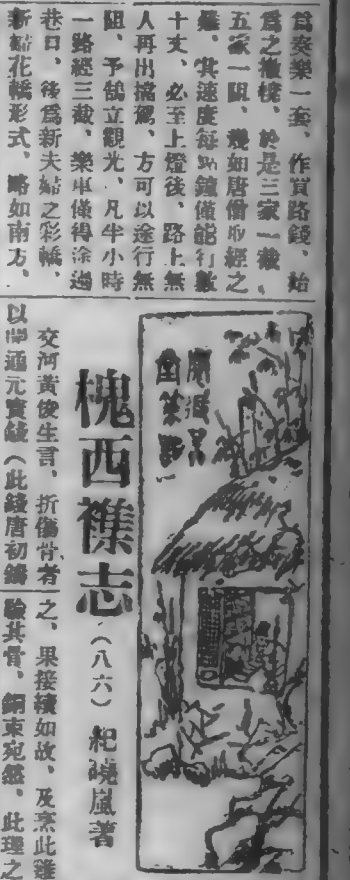 爲奏樂一套、作買路錢、始
爲之撤櫈、於是三家一截、
五家一阻、幾如唐僧取經之
難、其速度每點鐘僅能行數
十丈、必至上燈後、路上無
人再出擋駕、方可以途行無
阻、予鵠立觀光、凡半小時
一路經三截、樂車僅得涂過
巷口、後爲新夫婦之彩轎、
新婦花轎形式、略如南方、
槐西襍志（八六）紀曉嵐著
交河黃俊生言、折傷骨者
以開通元寳錢（此錢唐初鑄
之、果接續如故、及烹此雞
驗其骨、銅束宛然、此理之